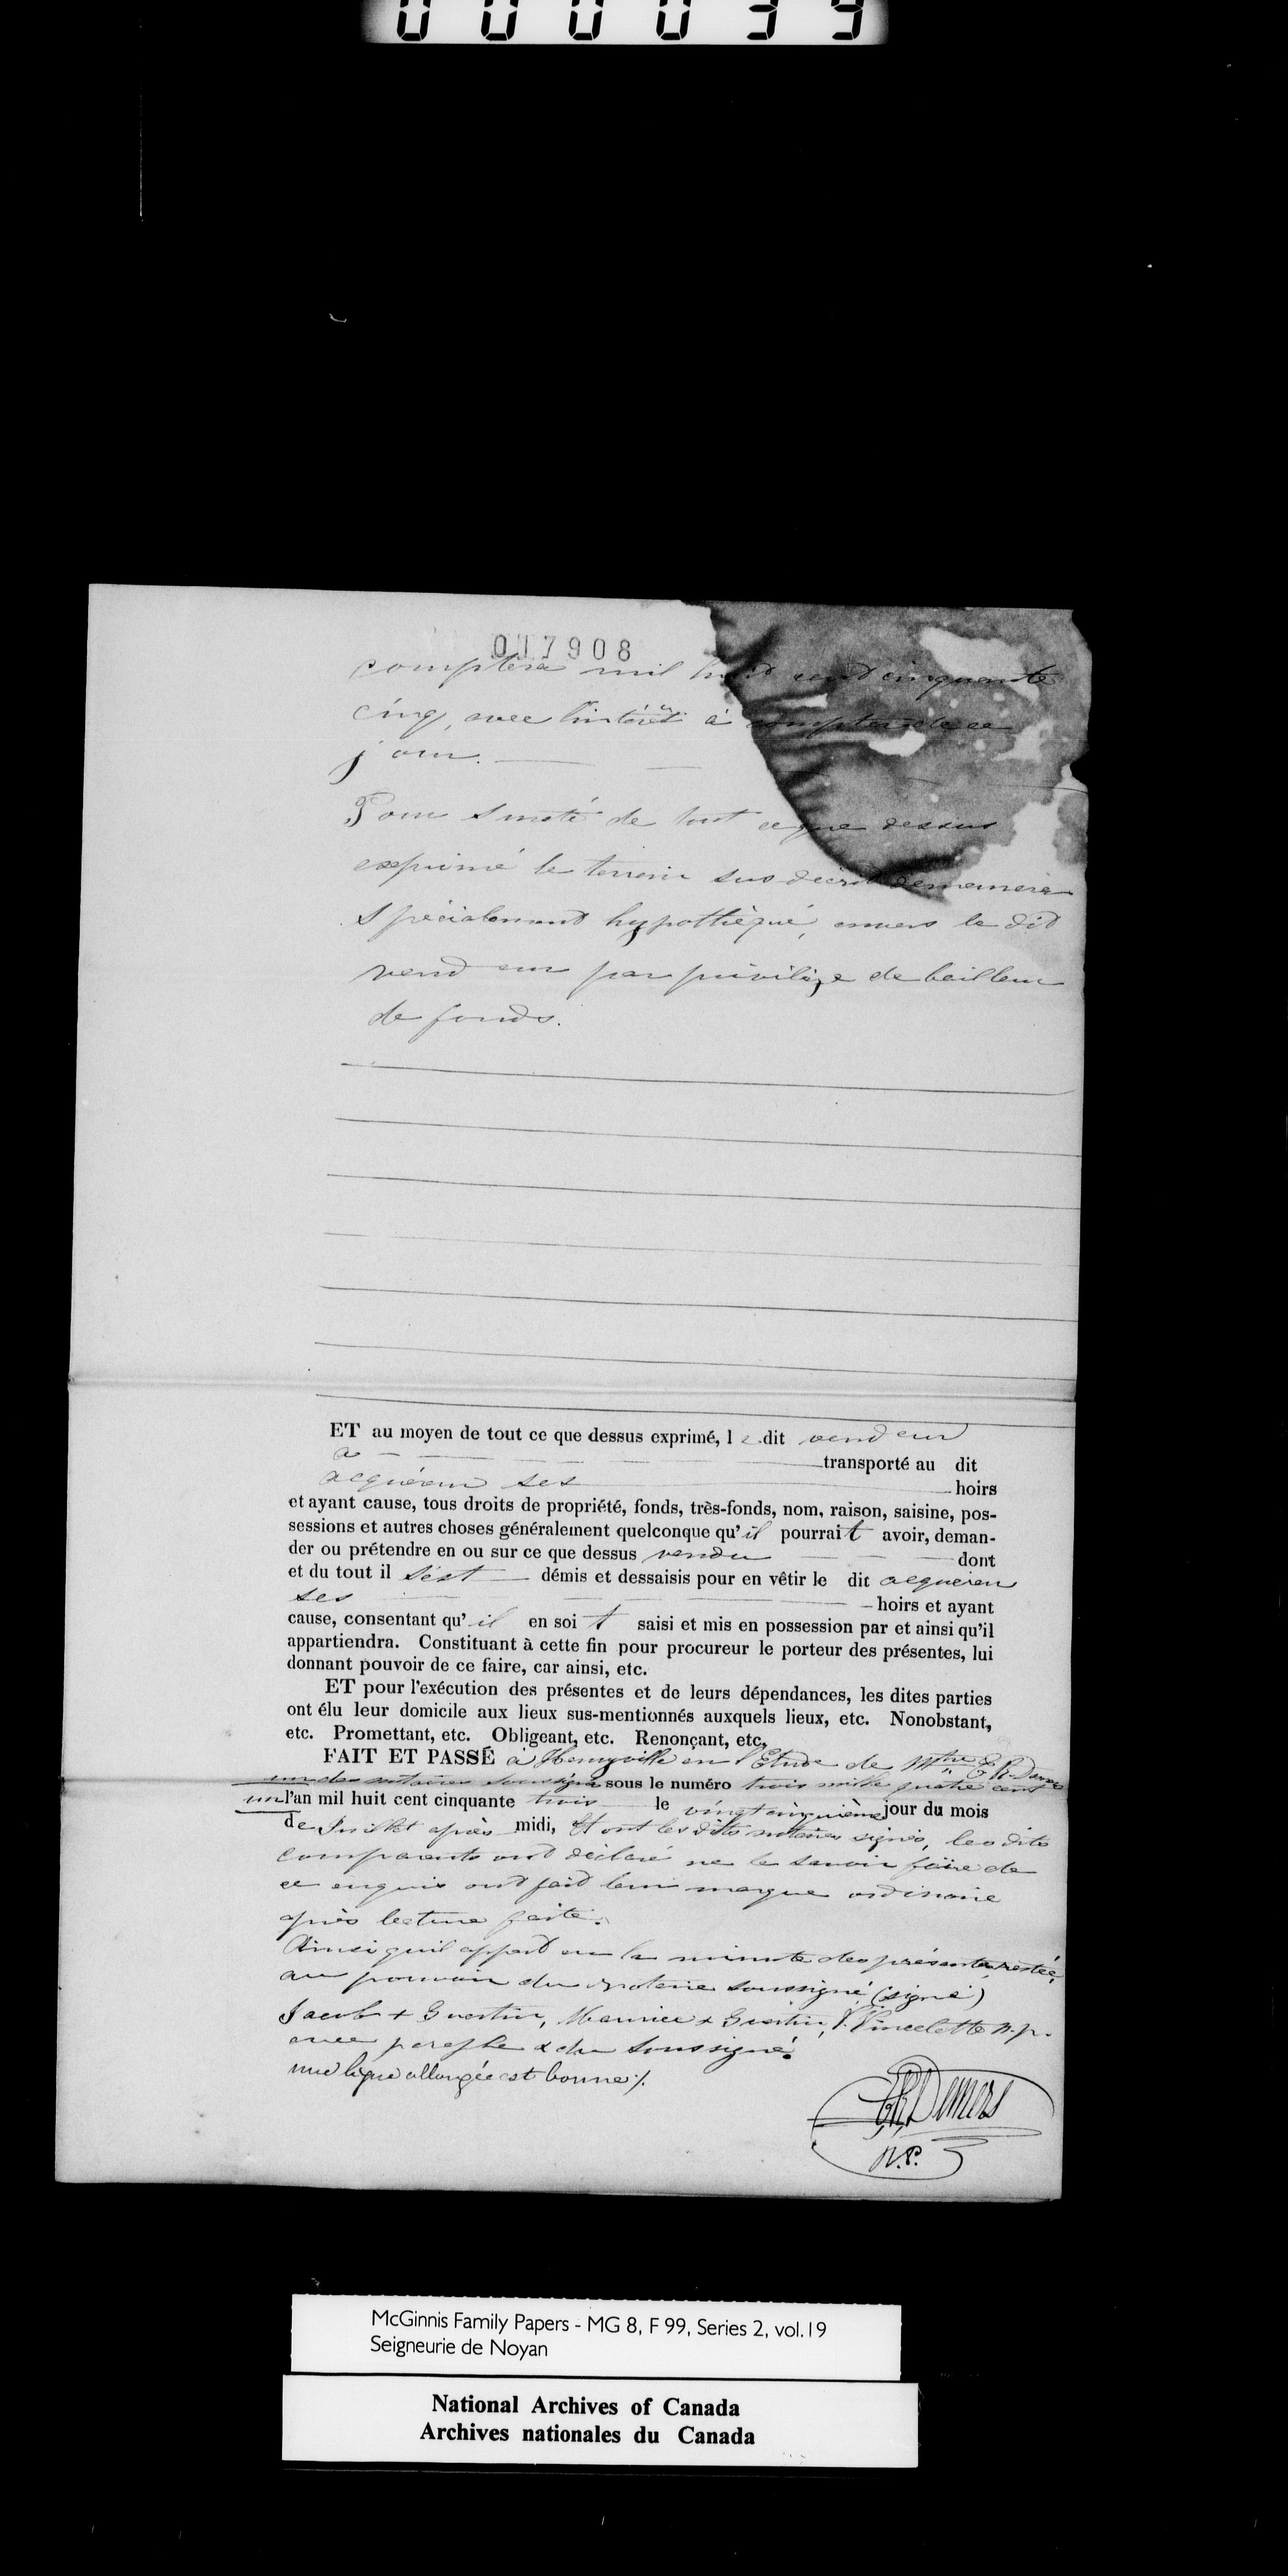 000039
017908
comptera mil huit cent cinquante
cinq, avec l'intérêt à compter de ce
jour.
Pour sureté de tout ce que dessus
exprimé le terrein sus décrit demeurera
spécialement hypothèqué, envers le dit
vendeur par privilège de bailleur
de fonds.
ET au moyen de tout ce que dessus exprimé, le dit vendeur
a transporté au dit
acquéreur ses hoirs
et ayant cause, tous droits de propriété, fonds, très-fonds, nom, raison, saisine, pos-
sessions et autres choses généralement quelconque qu'il pourrait avoir, deman-
der ou prétendre en ou sur ce que dessus vendu dont
et du tout il s'est démis et dessaisis pour en vêtir le dit acquéreur
ses hoirs et ayant
cause, consentant qu'il en soit saisi et mis en possession par et ainsi qu'il
appartiendra. Constituant à cette fin pour procureur le porteur des présentes, lui
donnant pouvoir de ce faire, car ainsi, etc.
ET pour l'exécution des présentes et de leurs dépendances, les dites parties
ont élu leur domicile aux lieux sus-mentionnés auxquels lieux, etc. Nonobstant,
etc. Promettant, etc. Obligeant, etc. Renonçant, etc.
FAIT ET PASSÉ à Henryville en l'Etude de Mtre E. R. Demers
un des notaires soussigné sous le numéro trois mille quatre cent
un l'an mil huit cent cinquante trois le vingt cinquième jour du mois
de Juillet après midi, Et ont les dits notaires signés, les dits
comparants ont déclaré ne le savoir faire de
ce enquis ont fait leur marque ordinaire
après lecture faite.
Ainsi qu'il appert en la minute des présentes restée,
au pouvoir du notaire soussigné (signé)
Jacob + Guertin, Maurice + Guertin, V. Vincelette N.P.
avec paraphe & du soussigné.
une ligne allongée est bonne /.
E. R. Demers
N.P.
McGinnis Family Papers - MG 8, F 99, Series 2, vol.19
Seigneurie de Noyan
National Archives of Canada
Archives nationales du Canada